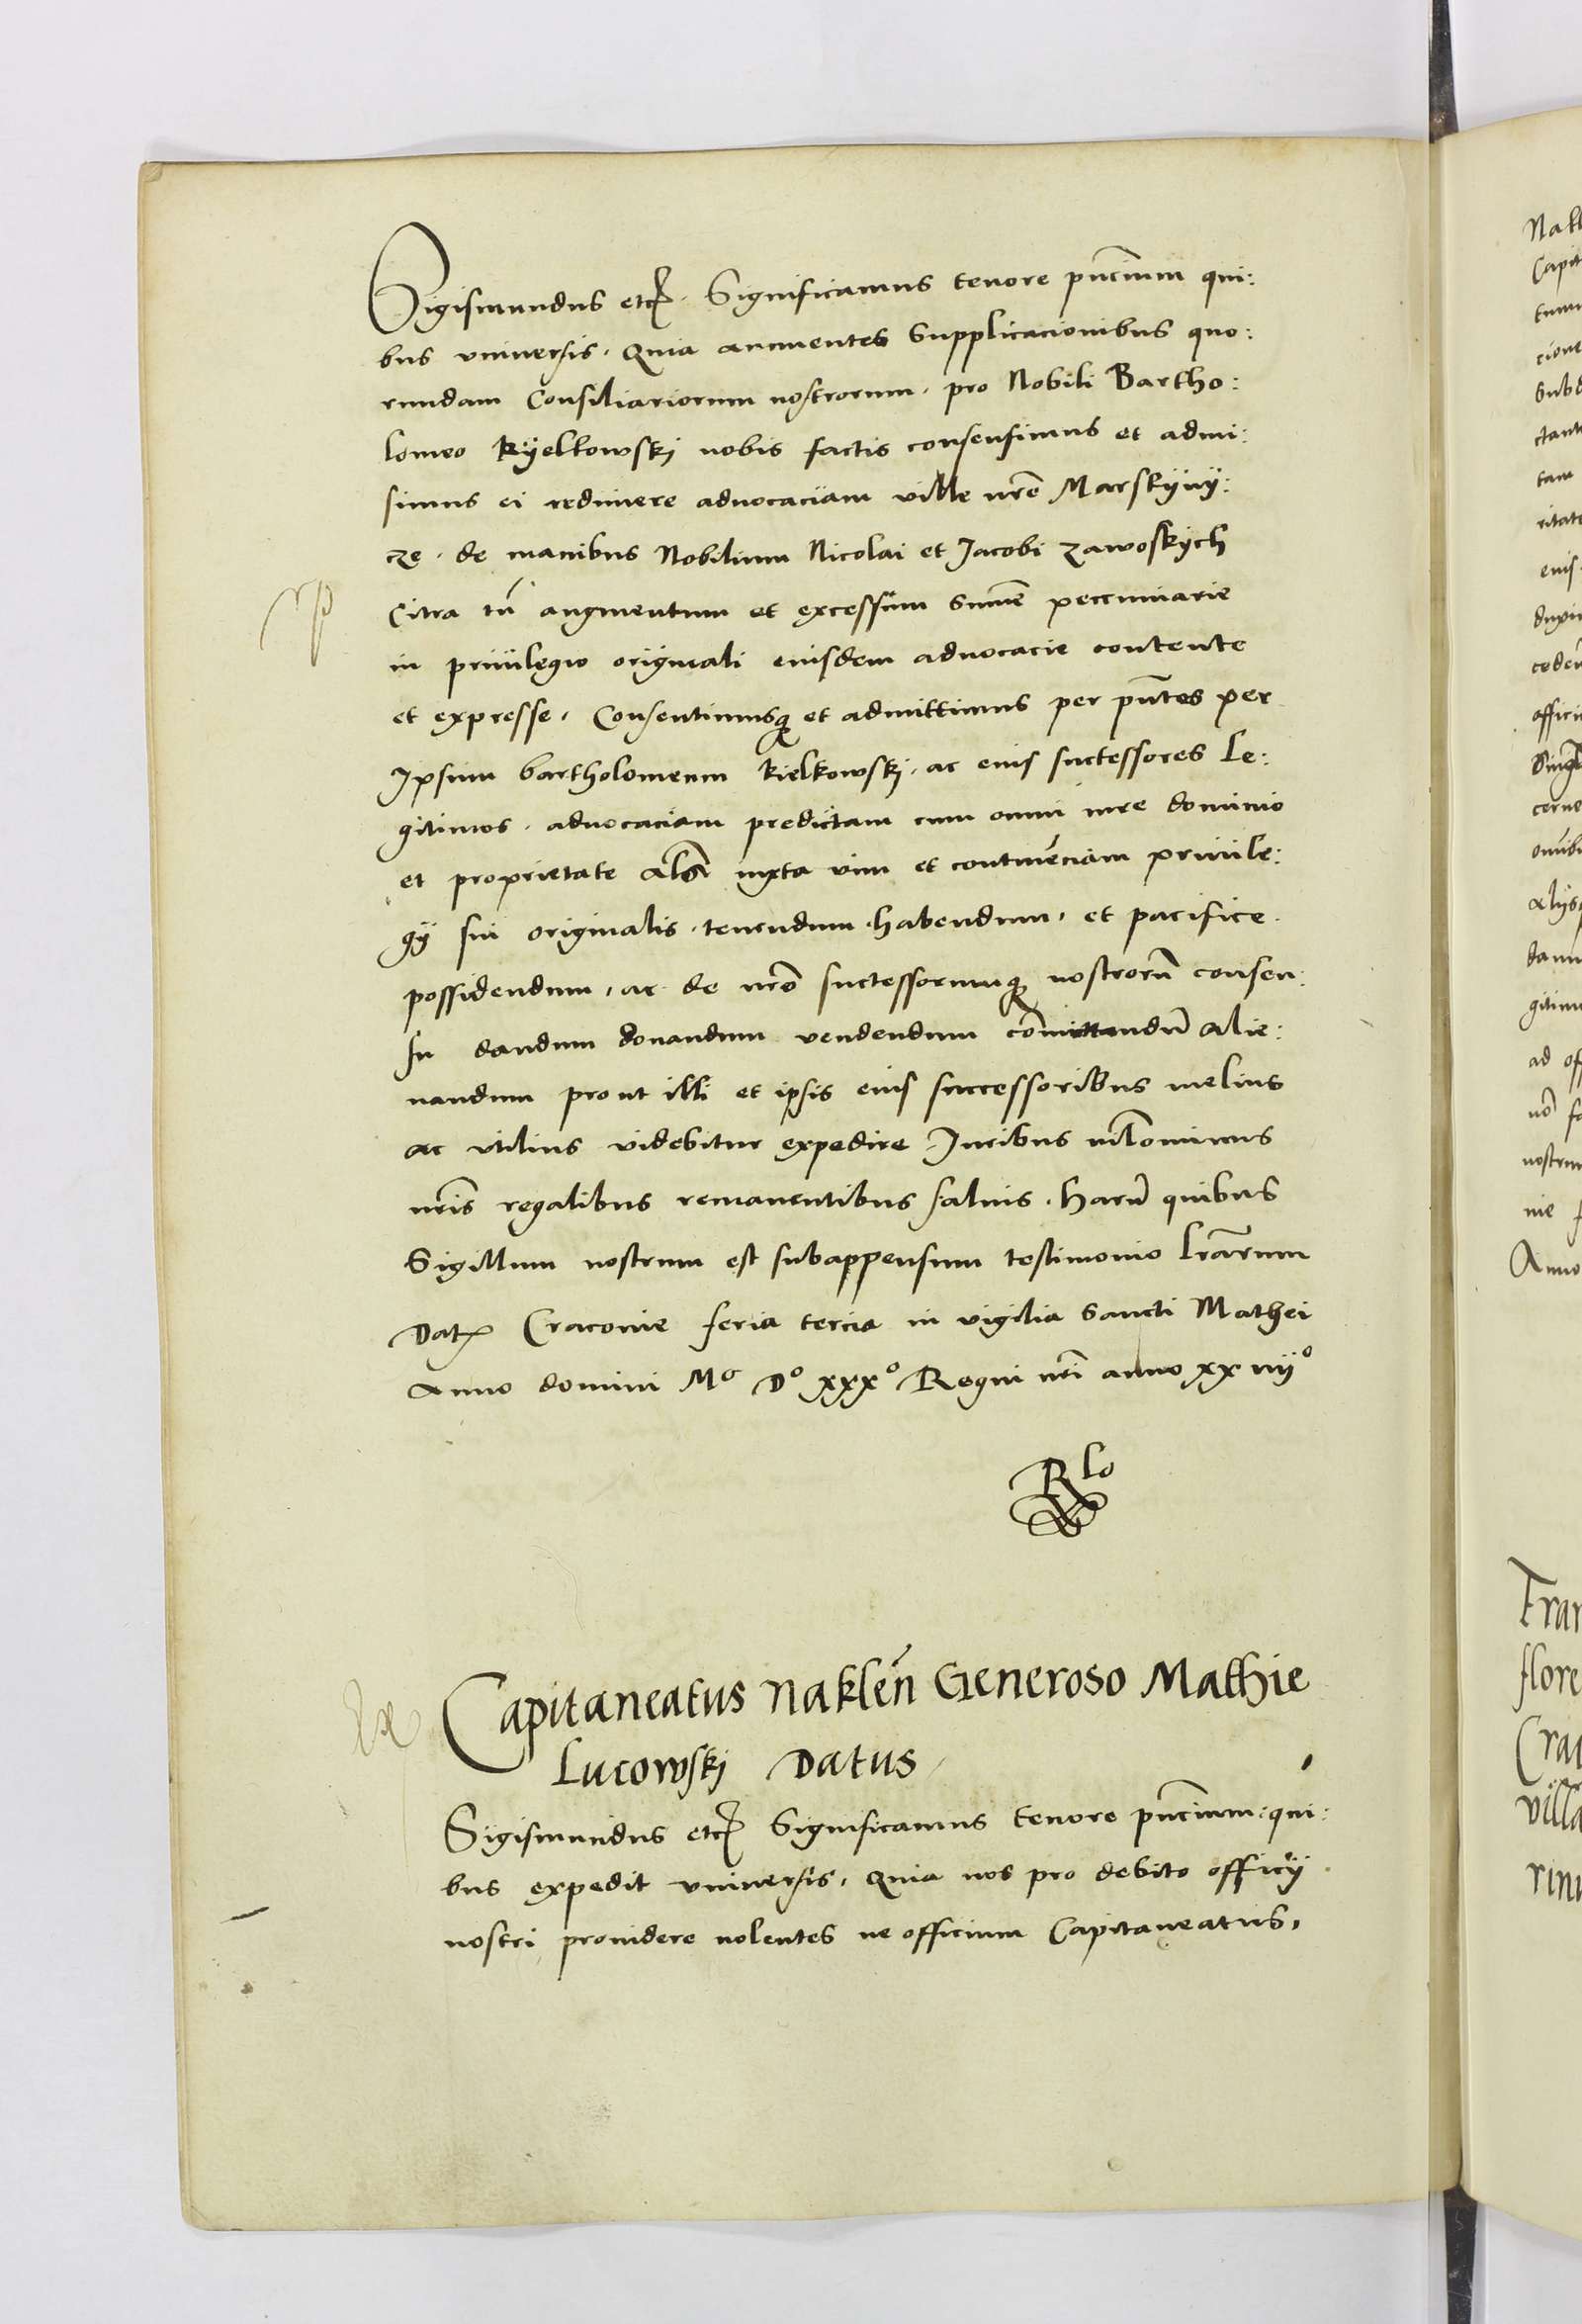 Sigismundus etc. Significamus tenore pñcium qui:
bus vniuersis. Quia annuentes Supplicacionibus quo:
rundam Consiliariorum nostrorum. pro Nobili Bartho:
lomeo Kÿelkowskj nobis factis consensimus et admi:
simus ei redimere aduocaciam ville nrẽ Marskÿvÿ:
cze. de manibus Nobilium Nicolai et Jacobi Zawoskÿch
Citra tñ augmentum et excessum Summẽ peccuniarie
in priuilegio originali eiusdem aduocacie contente
et expresse. Consentimusq et admittimus per pñtes per
Ipsum bartholomeum kielkowskj. ac eius successores le:
gitimos. aduocaciam predictam cum omni iure dominio
et proprietate als iuxta vim et continẽciam priuile:
gÿ sui originalis. tenendum. habendum. et pacifice.
possidendum. ac de nrõ successorumq nostrorũ consen:
su dandum donandum vendendum cõmittandũ Alie:
nandum prout illi et ipsis eius successoribus melius
ac vtilius videbitur expedire. Iuribus nilominus
nrĩs regalibus remanentibus saluis. harũ quibus
Sigillum nostrum est subappensum testimonio lrãrum
Dat Craconie feria tercia in vigilia Sancti Mathei
Anno domini Mº Dº xxxº Regni nrĩ anno xxiiijº
Rlo
Capitaneatus Naklẽn Generoso Mathie
Lucowskj Datus
Sigismundus etc Significamus tenore pñcium: qui:
bus expedit vniuersis. Quia nos pro debito officÿ
nostri prouidere volentes ne officium Capitaneatus.